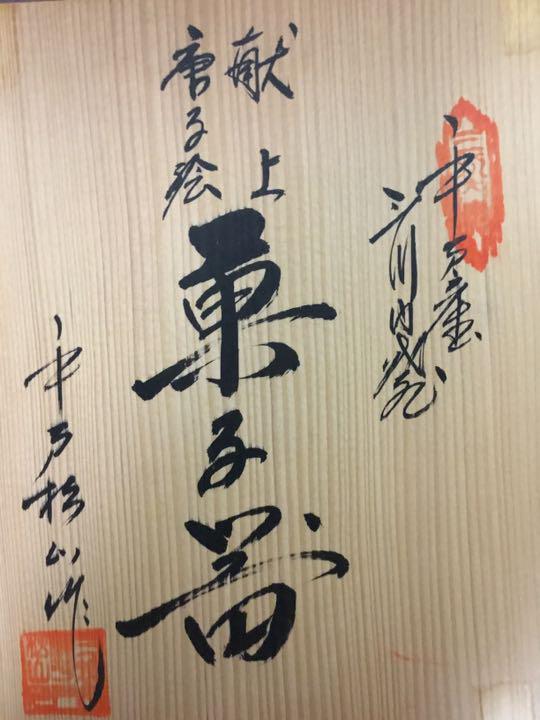 平戸
三川内焼
献上
唐子絵
菓子器
平戸松山作